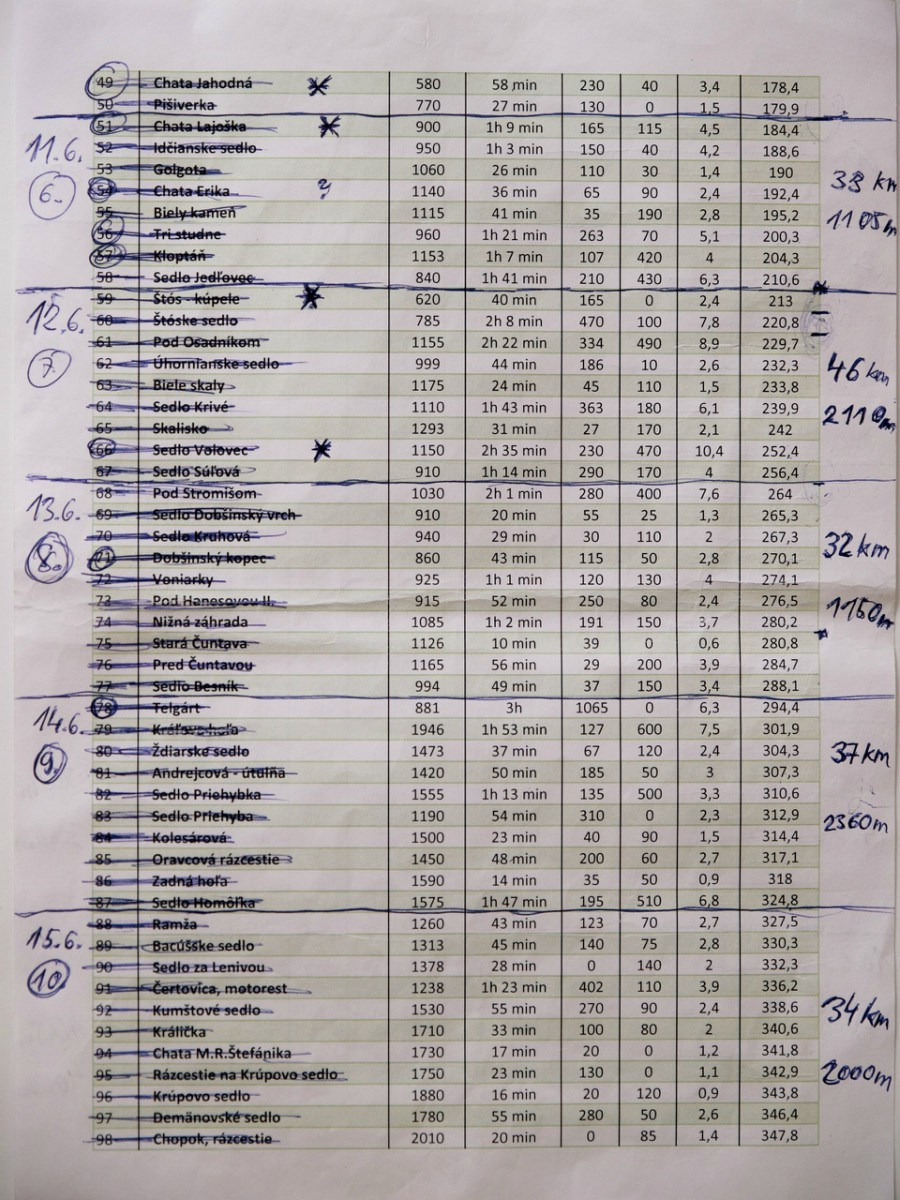 49 Chata Jahodná 580 58 min 230 40 3,4 178,4
50 Pišiverka 770 27 min 130 0 1,5 179,9
51 Chata Lajoška 900 1h 9 min 165 115 4,5 184,4
11.6. 52 Idčianske sedlo 950 1h 3 min 150 40 4,2 188,6
53 Golgota 1060 26 min 110 30 1,4 190
6. 54 Chata Erika ? 1140 36 min 65 90 2,4 192,4 38 km
55 Biely kameň 1115 41 min 35 190 2,8 195,2 1105m
56 Tri studne 960 1h 21 min 263 70 5,1 200,3
57 Kloptáň 1153 1h 7 min 107 420 4 204,3
58 Sedlo Jedľovec 840 1h 41 min 210 430 6,3 210,6
59 Štós - kúpele 620 40 min 165 0 2,4 213
12.6. 60 Štóske sedlo 785 2h 8 min 470 100 7,8 220,8
61 Pod Osadníkom 1155 2h 22 min 334 490 8,9 229,7
7. 62 Úhornianske sedlo 999 44 min 186 10 2,6 232,3 46 km
63 Biele skaly 1175 24 min 45 110 1,5 233,8
64 Sedlo Krivé 1110 1h 43 min 363 180 6,1 239,9 2110m
65 Skalisko 1293 31 min 27 170 2,1 242
66 Sedlo Volovec 1150 2h 35 min 230 470 10,4 252,4
67 Sedlo Súľová 910 1h 14 min 290 170 4 256,4
68 Pod Stromišom 1030 2h 1 min 280 400 7,6 264
13.6. 69 Sedlo Dobšinský vrch 910 20 min 55 25 1,3 265,3
70 Sedlo Kruhová 940 29 min 30 110 2 267,3
8. 71 Dobšinský kopec 860 43 min 115 50 2,8 270,1 32 km
72 Voniarky 925 1h 1 min 120 130 4 274,1
73 Pod Hanesovou II. 915 52 min 250 80 2,4 276,5 1150m
74 Nižná záhrada 1085 1h 2 min 191 150 3,7 280,2
75 Stará Čuntava 1126 10 min 39 0 0,6 280,8
76 Pred Čuntavou 1165 56 min 29 200 3,9 284,7
77 Sedlo Besník 994 49 min 37 150 3,4 288,1
78 Telgárt 881 3h 1065 0 6,3 294,4
14.6. 79 Kráľova hoľa 1946 1h 53 min 127 600 7,5 301,9
80 Ždiarske sedlo 1473 37 min 67 120 2,4 304,3 37 km
9. 81 Andrejcová - útulňa 1420 50 min 185 50 3 307,3
82 Sedlo Priehybka 1555 1h 13 min 135 500 3,3 310,6
83 Sedlo Priehyba 1190 54 min 310 0 2,3 312,9 2360m
84 Kolesárová 1500 23 min 40 90 1,5 314,4
85 Oravcová rázcestie 1450 48 min 200 60 2,7 317,1
86 Zadná hoľa 1590 14 min 35 50 0,9 318
87 Sedlo Homôľka 1575 1h 47 min 195 510 6,8 324,8
88 Ramža 1260 43 min 123 70 2,7 327,5
15.6. 89 Bacúšske sedlo 1313 45 min 140 75 2,8 330,3
10. 90 Sedlo za Lenivou 1378 28 min 0 140 2 332,3
91 Čertovica, motorest 1238 1h 23 min 402 110 3,9 336,2
92 Kumštové sedlo 1530 55 min 270 90 2,4 338,6 34 km
93 Králička 1710 33 min 100 80 2 340,6
94 Chata M.R.Štefánika 1730 17 min 20 0 1,2 341,8
95 Rázcestie na Krúpovo sedlo 1750 23 min 130 0 1,1 342,9 2000m
96 Krúpovo sedlo 1880 16 min 20 120 0,9 343,8
97 Demänovské sedlo 1780 55 min 280 50 2,6 346,4
98 Chopok, rázcestie 2010 20 min 0 85 1,4 347,8